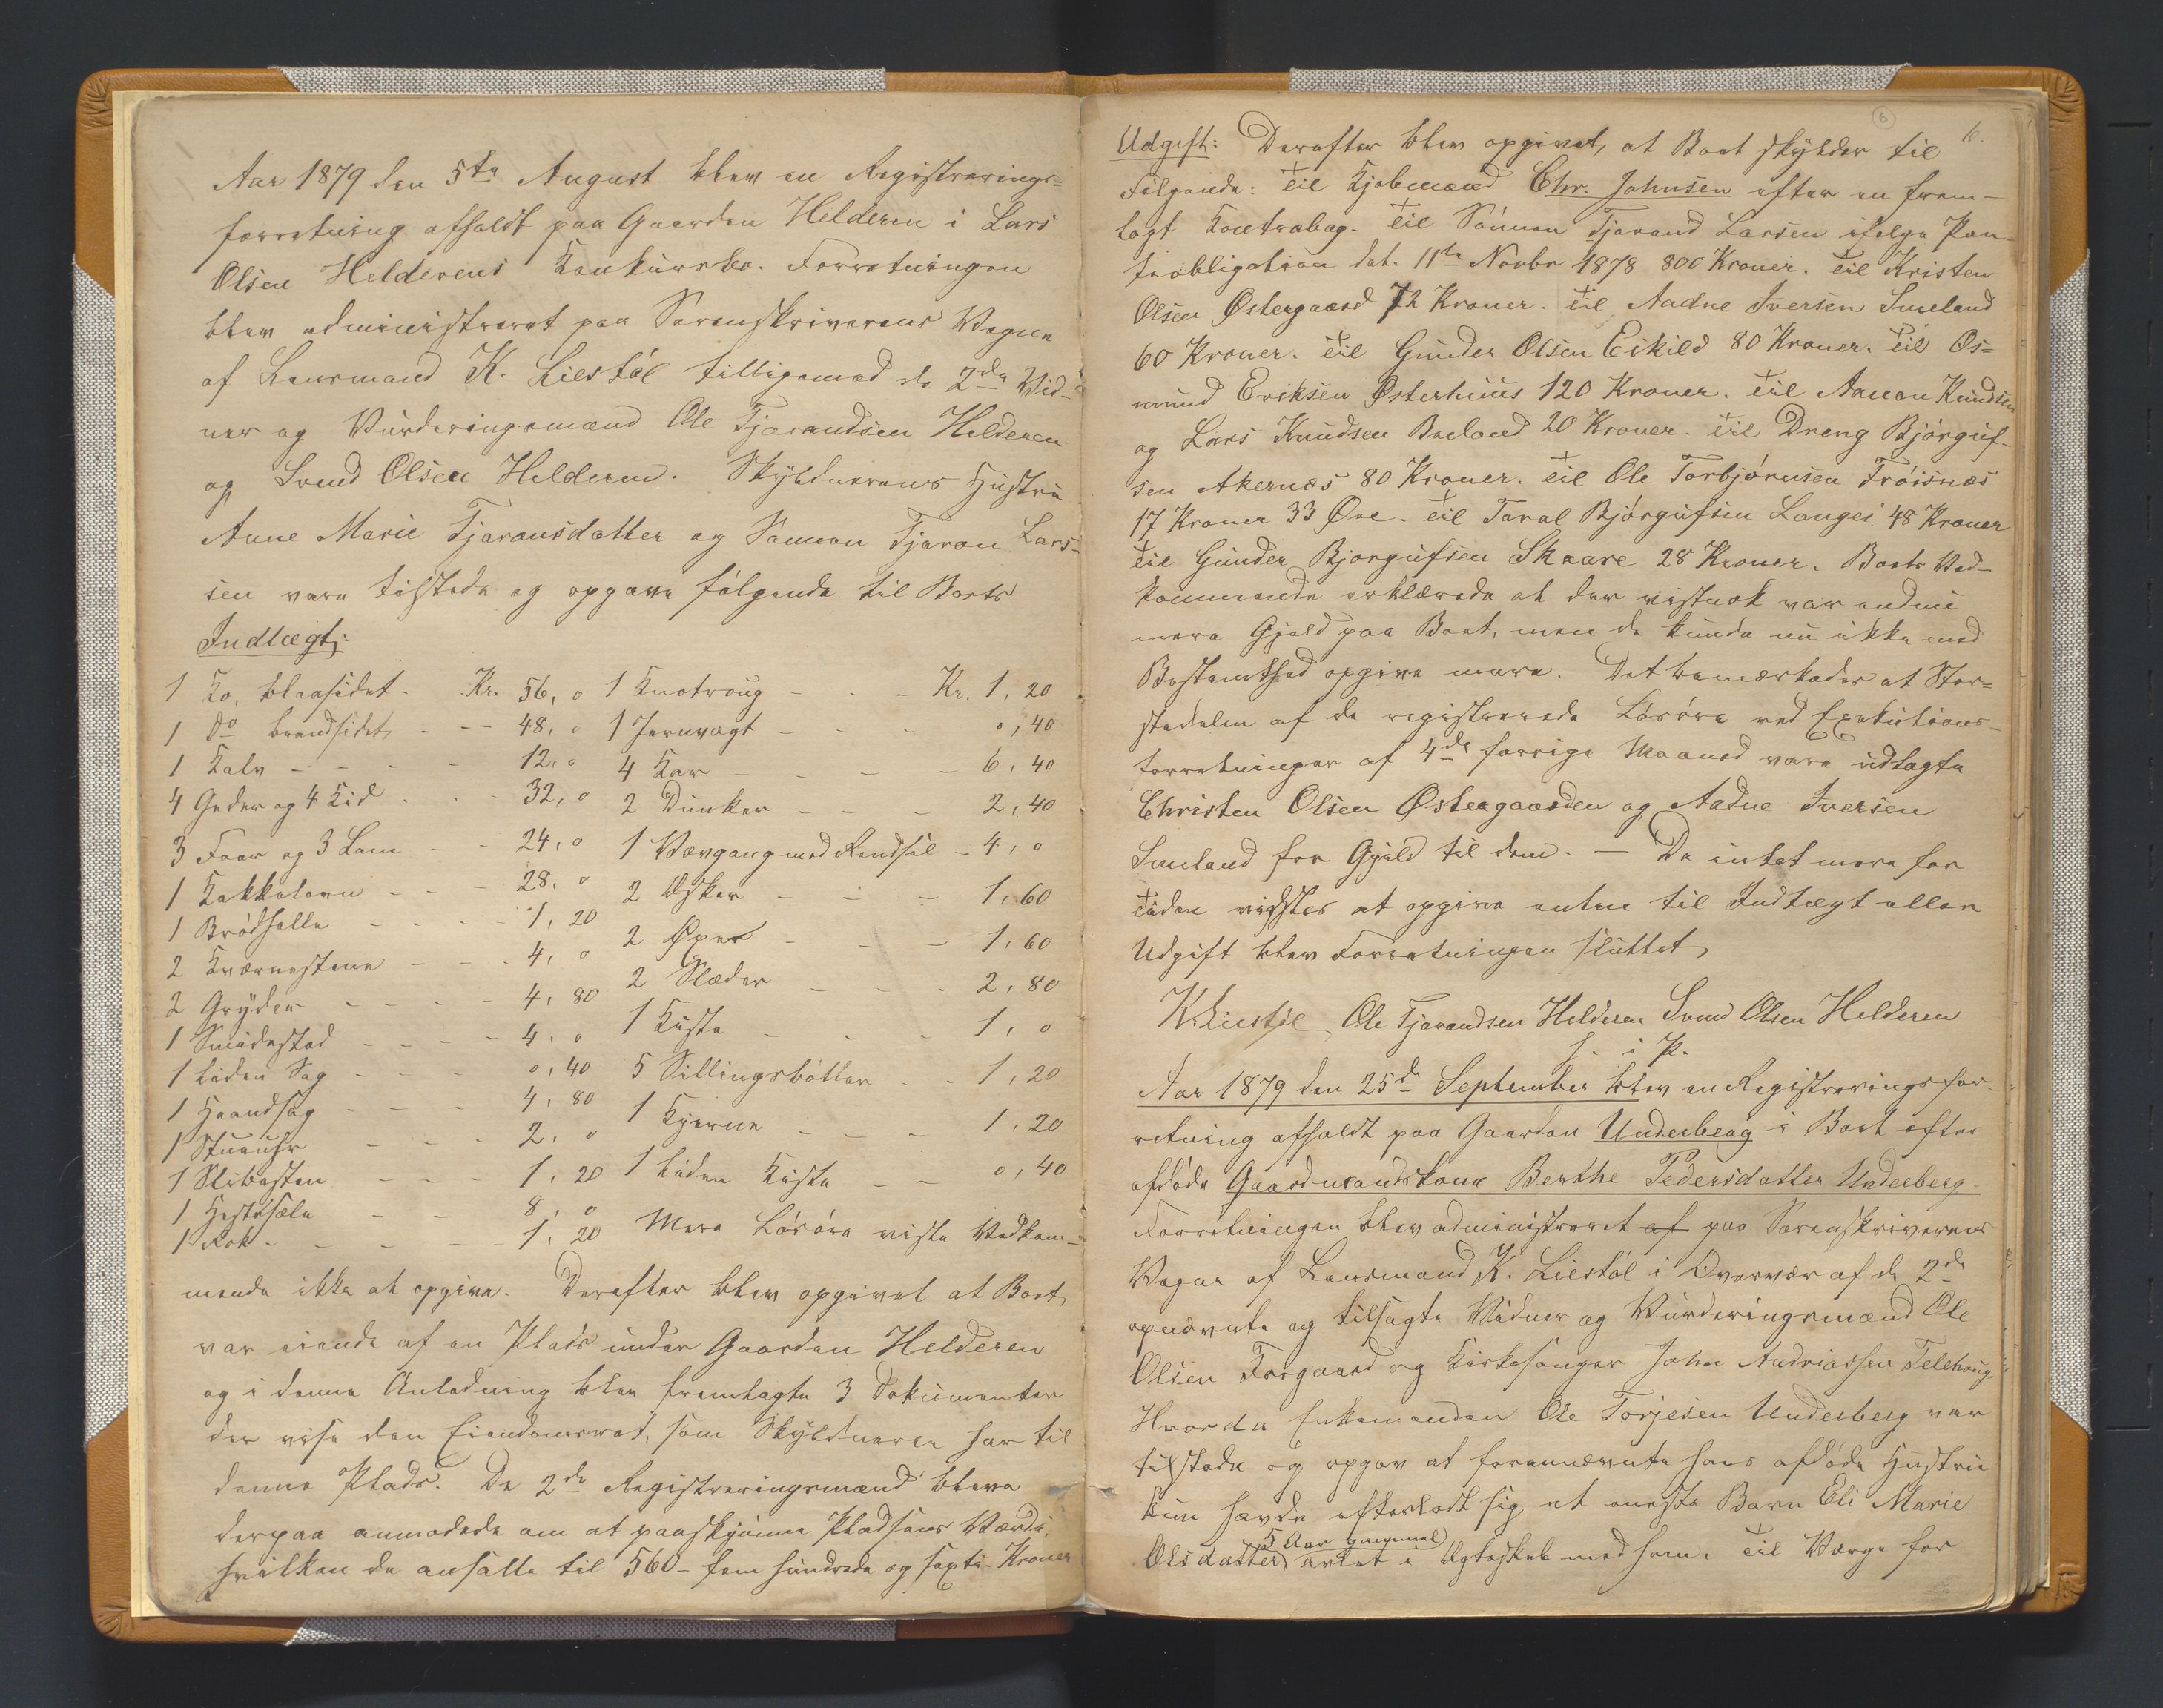 Aar 1879 den 5te August blev en Registrerings-
forretning afholdt paa Gaarden Helderen i Lars
Olsen Helderens Konkursbo. Forretningen
blev administreret paa Sorenskriverens Vegne
af Lensmand K. Liestøl tilligemed de 2de Vid-
ner og Vurderingsmænd Ole Tjorandsen Helderen
og Svend Olsen Helderen. Skyldnerens Hustru
Anne Marie Tjaransdatter og Sønnen Tjaran Lars-
sen vare tilstede og opgave følgende til Boets
Indtægt:
1 Ko, blaasidet - Kr. 56, 0
1 Do brandsidet - - 48, 0
1 Kalv - - - - 12, 0
4 Geder og 4 Kid - - 32, 0
3 Faar og 3 Lam - - 24, 0
1 Kakkelovn - - - 28, 0
1 Brødhelle - - - 1, 20
2 Kværnestene - - - 4, 0
2 Gryder - - - - 4, 80
1 Smidestad - - - - 4, 0
1 liden Sag - - - 0, 40
1 Haandsag - - - 4, 80
1 Stueuhr - - - 2, 0
1 Slibesten - - - 1, 20
1 Hestesæle - - 8, 0
1 Rok - - - - - 1, 20
1 Knotroug - - - Kr. 1, 20
1 Jernvægt - - - 0, 40
4 Kar - - - - 6, 40
2 Dunker - - - 2, 40
1 Vævgang med Rendsel - 4, 0
2 Æsker - - - 1, 60
2 Øxer - - - 1, 60
2 Slæder - - - 2, 80
1 Kiste - - - 1, 0
5 Sillingsbøtter - - 1, 20
1 Kjerne - - - 1, 20
1 liden Kiste - - 0, 40
Mere Løsøre viste Vedkom-
mende ikke at opgive. Derefter blev opgivet at Boet
var eiende af en Plads under Gaarden Helderen
og i denne Anledning blev fremlagte 3 Dokumenter
der vise den Eiendomsret, som Skyldneren har til
denne Plads. De 2de Registreringsmænd bleve
derpaa anmodede om at paaskjønne Pladsens Værdi,
hvilken de ansatte til 560 - fem hundrede og sexti - Kroner
6
6.
Udgift: Derefter blev opgivet, at Boet skylder til
Følgende: Til Kjøbmand Chr. Johnsen efter en frem-
lagt Kontrabog. Til Sønnen Tjorand Larsen ifølge Pan-
teobligation dat. 11te Novbr 1878 800 Kroner. Til Kristen
Olsen Østergaard 72 Kroner. Til Aadne Iversen Smeland
60 Kroner. Til Gunder Olsen Eikild 80 Kroner. Til Os-
mund Eriksen Østerhuus 120 Kroner. Til Aanon Knudsen
og Lars Knudsen Breland 20 Kroner. Til Dreng Bjørguf-
sen Akernæs 80 Kroner. Til Ole Torbjørnsen Frøisnæs
17 Kroner 33 Øre. Til Taral Bjørgufsen Langei 48 Kroner
Til Gunder Bjorgufsen Skaare 28 Kroner. Boets Ved-
kommende erklærede at der vistnok var endnu
mere Gjeld paa Boet, men de kunde nu ikke med
Bestemthed opgive mere. Det bemærkedes at Stør-
stedelen af de registrerede Løsøre ved Exekutions-
forretninger af 4de forrige Maaned vare udtagte
Christen Olsen Østergaarden og Aadne Iversen
Smeland for Gjeld til dem. - Da intet mere for
Tiden vidstes at opgive enten til Indtægt eller
Udgift blev Forretningen sluttet,
K. Liestøl Ole Tjorandsen Helderen Svend Olsen Helderen
h. i P.
Aar 1879 den 25de September blev en Registreringsfor-
retning afholdt paa Gaarden Underberg i Boet efter
afdøde Gaardmandskone Berthe Pedersdatter Underberg.
Forretningen blev administreret af paa Sorenskriverens
Vegne af Lensmand K. Liestøl i Overvær af de 2de
opnævnte og tilsagte Vidner og Vurderingsmænd Ole
Olsen Forgaard og Kirkesanger John Andriassen Telehaug.
Hvorda Enkemanden Ole Torjesen Underberg var
tilstede og opgav at forannævnte hans afdøde Hustru
kun havde efterladt sig et eneste Barn Eli Marie
5 Aar gammel
Olsdatter avlet i Ægteskab med ham. Til Værge for